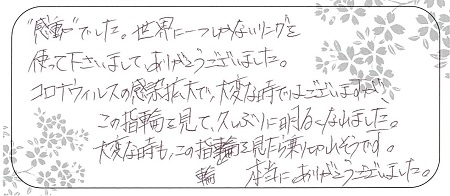 "感動"でした。世界に一つしかないリングを
使って下さいまして、ありがとうございました。
コロナウィルスの感染拡大で、大変な時ではございますが、
この指輪を見て、久しぶりに明るくなれました。
大変な時も、この指輪を見たら乗りこえれそうです。
輪 本当にありがとうございました。